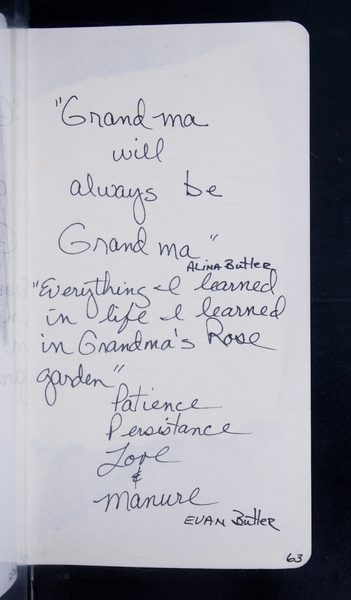 "Grandma
will
always be
Grandma"
ALINA Butler
"Everything I learned
in life I learned
in Grandma's Rose
garden"
Patience
Persistance
Love
&
Manure
EVAN Butler
63